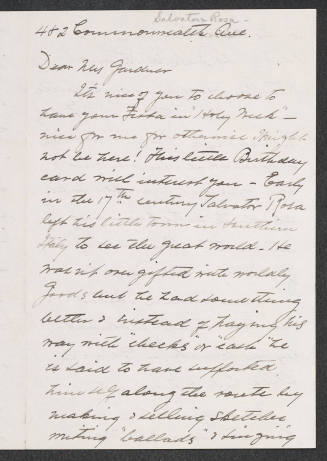 Salvator Rosa -
482 Commonwealth Ave.
Dear Mrs Gardner
It's nice of you to choose to
have your Festa in "Holy Week" -
nice for me for otherwise I might
not be here! This little Birthday
card will interest you - Early
in the 17th century Salvator Rosa
left his little town in Southern
Italy to see the great world - He
was not over gifted with worldly
Goods but he had something
better & instead of paying his
way with "checks" or "cash" he
is said to have supported
himself along the route by
making & selling sketches
writing "ballads" & singing